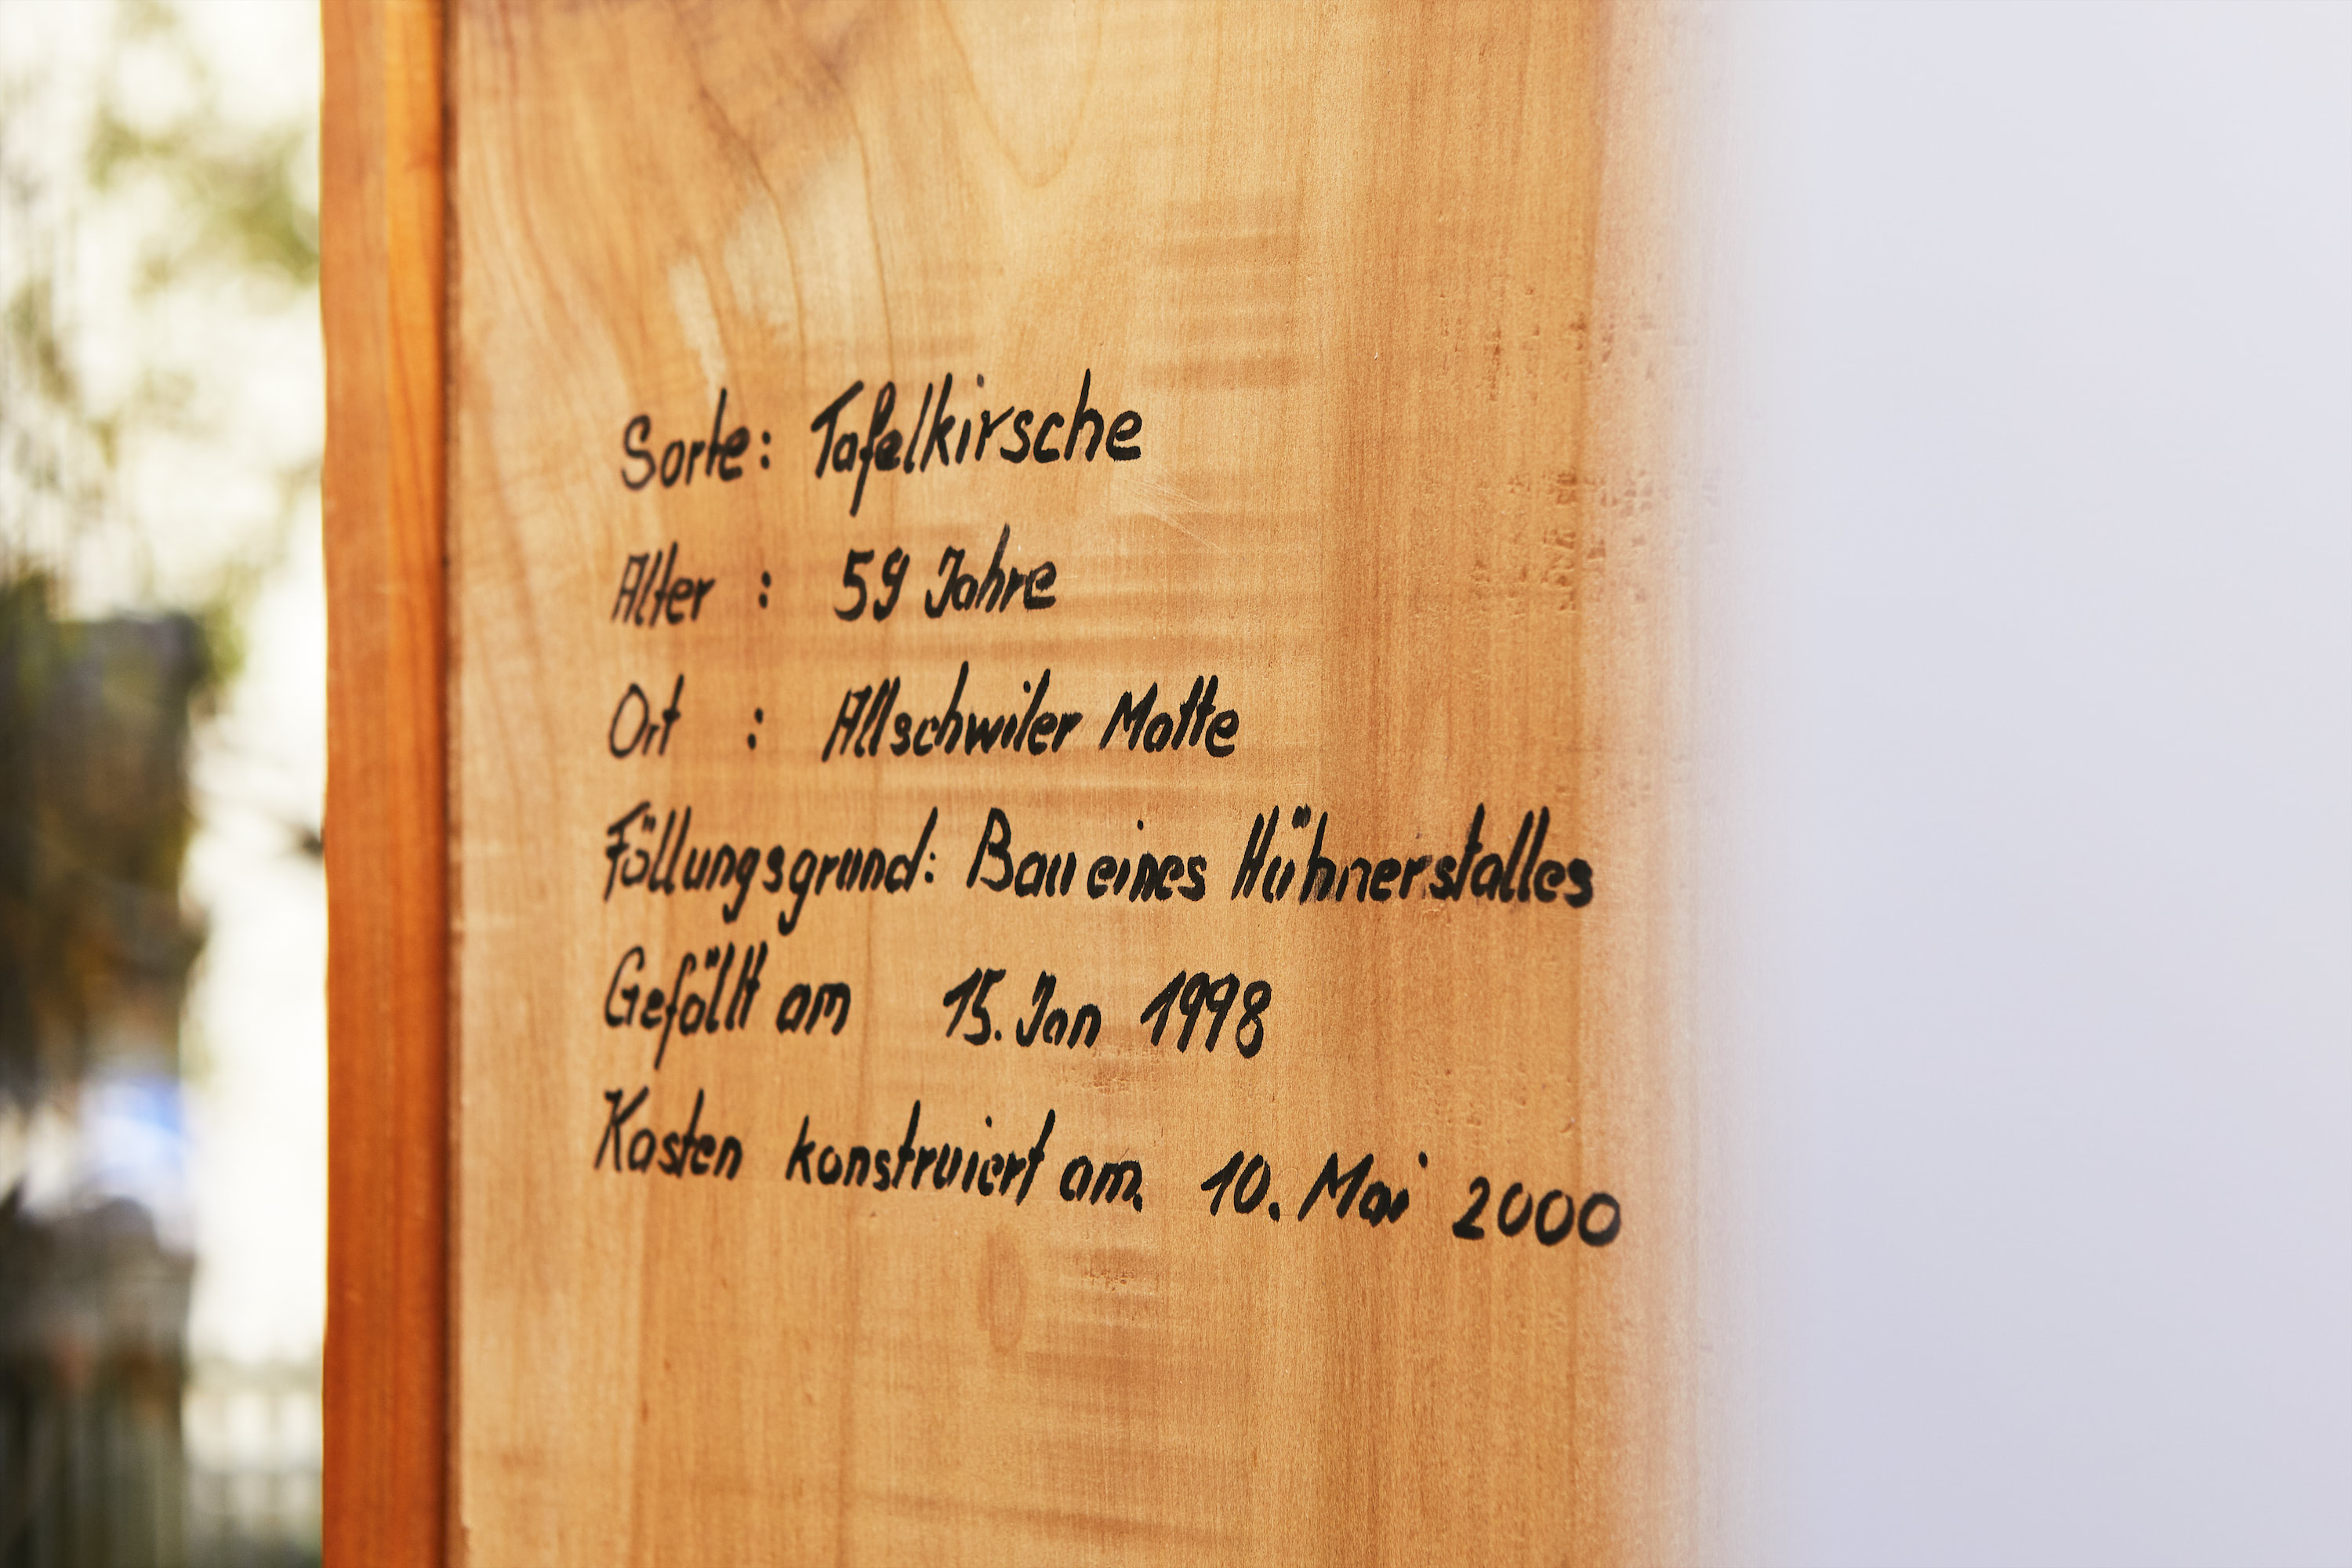 Sorte: Tafelkirsche
Alter : 59 Jahre
Ort : Allschwiler Matte
Fällungsgrund: Bau eines Hühnerstalles
Gefällt am 15. Jan 1998
Kasten konstruiert am. 10. Mai 2000